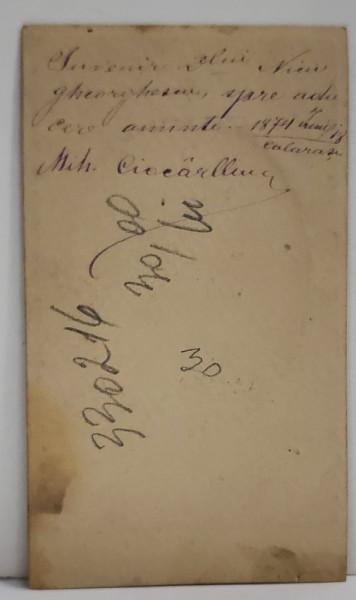 Suvenir Dlui Nicu
Gheorghescu, spre adu
cere aminte. 1874 Iunie 18
Calarași
Mih. Ciocârllung
30
330216